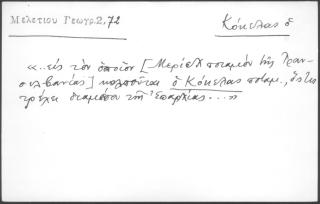 Μελετίου Γεωγρ.2,72
Κόκελας ὁ
«..εἰς τὸν ὁποῖον [Μερίσιν ποταμὸν τῆς Τραν-
συλβανίας] κολποῦται ὁ Κόκελας ποταμ., ὅστις
τρέχει διαμέσου τῆς Ἐπαρχίας...»